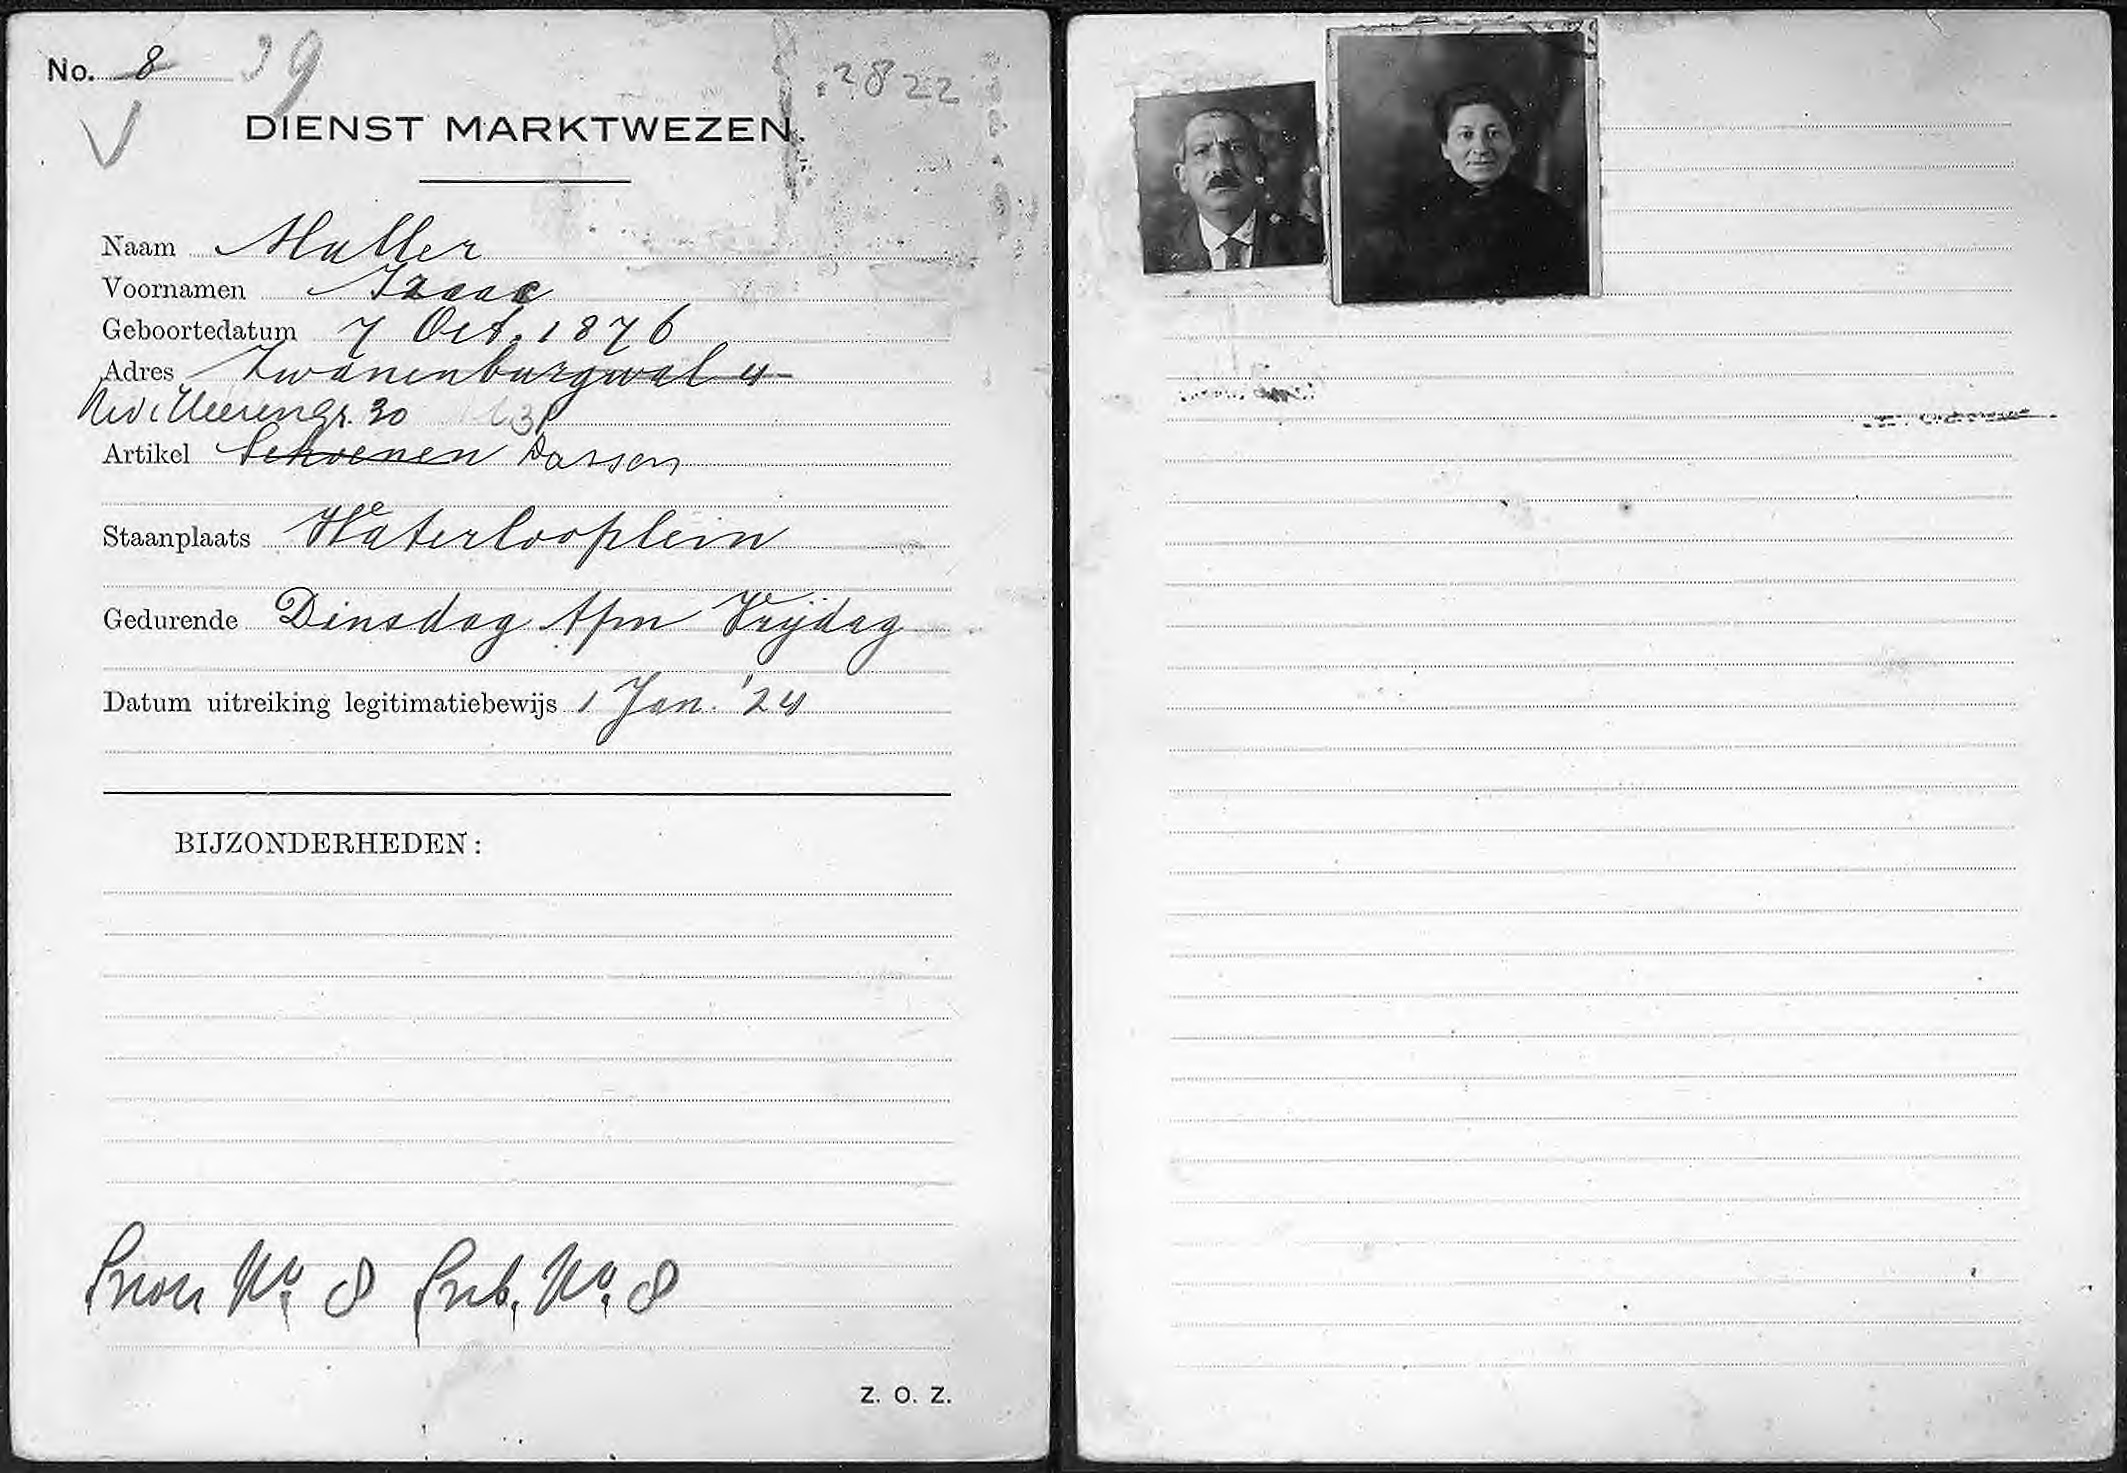 No. 8 39
2822
DIENST MARKTWEZEN.
Naam Muller
Voornamen Izaac
Geboortedatum 7 Oct. 1876
Adres Zwanenburgwal 4
Nw. Heerengr. 30
Artikel Schoenen Dassen
Staanplaats Waterlooplein
Gedurende Dinsdag t/m Vrijdag
Datum uitreiking legitimatiebewijs 1 Jan. '24
BIJZONDERHEDEN:
No. 8 No. 8
Z. O. Z.